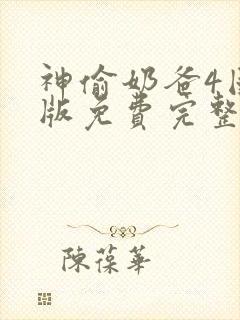 神偷奶爸4
版免费完整
陳葆華